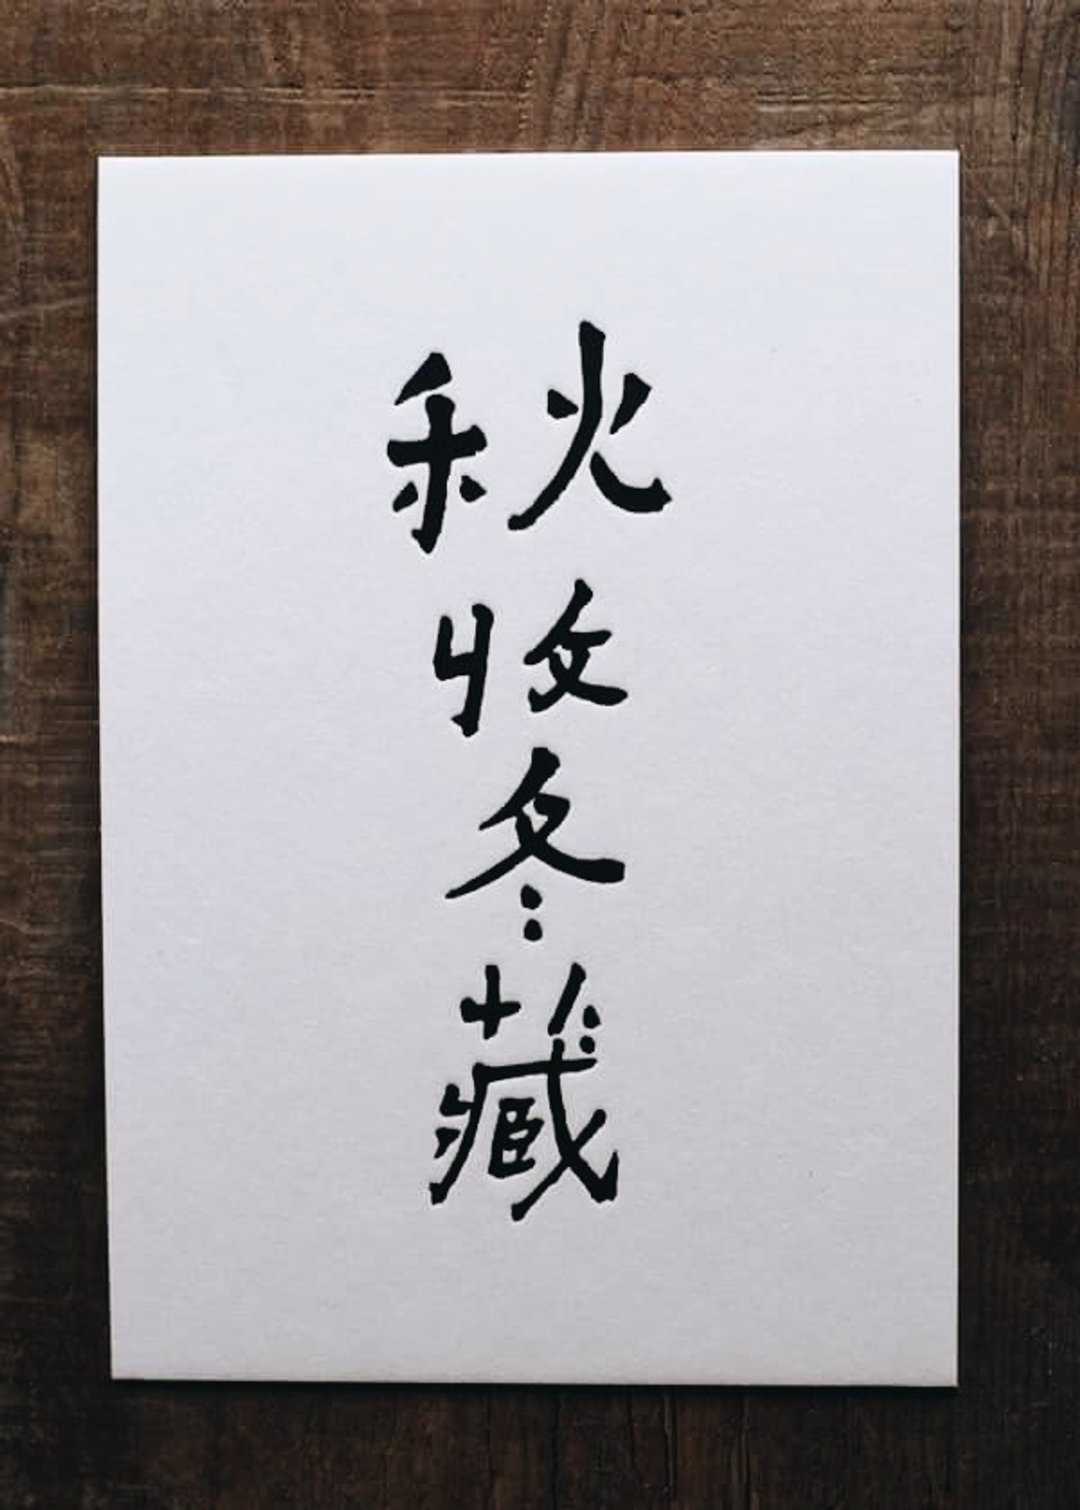 秋收冬藏